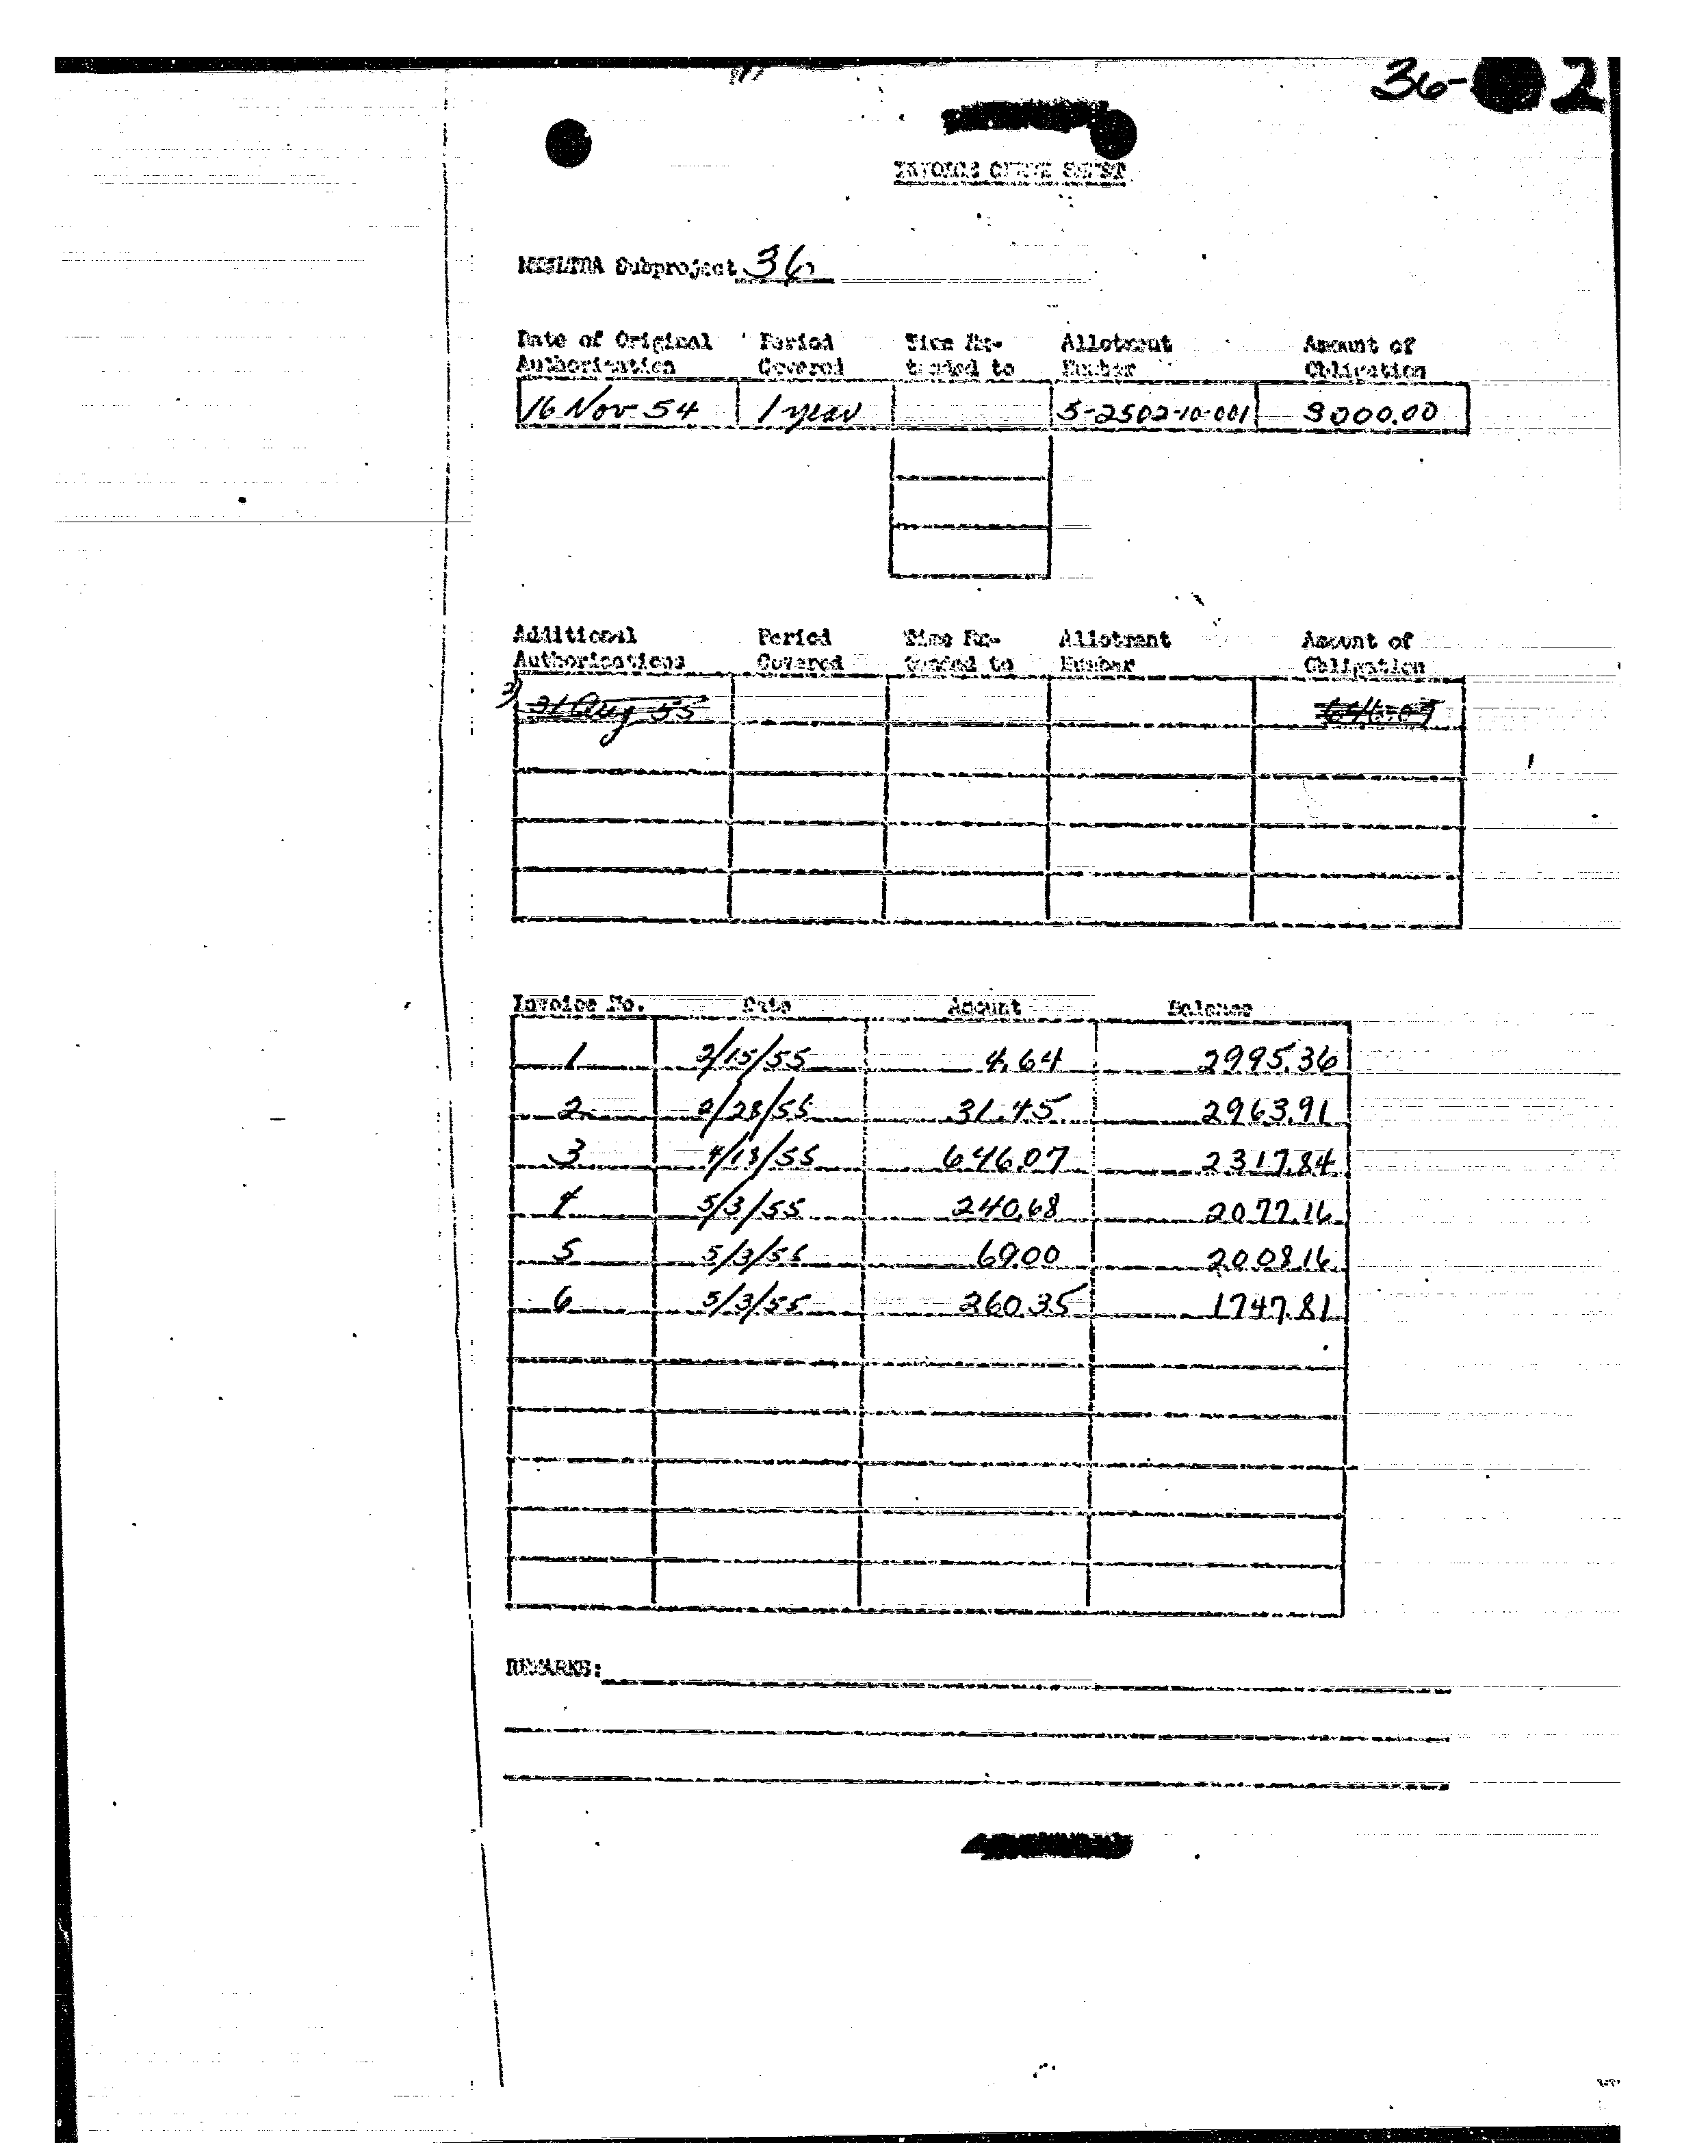 36- 2
INVOICE CHECK SHEET
MKULTRA Subproject 36
Date of Original Authorization Period Covered Time Ex-tended to Allotment Number Amount of Obligation
16 Nov 54 1 year 5-2502-10-001 3000.00
Additional Authorizations Period Covered Time Ex-tended to Allotment Number Amount of Obligation
31 Aug 55
Invoice No. Date Amount Balance
1 2/15/55 4.64 2995.36
2 2/28/55 31.45 2963.91
3 4/13/55 646.07 2317.84
4 5/3/55 240.68 2077.16
5 5/3/55 69.00 2008.16
6 5/3/55 260.35 1747.81
REMARKS: